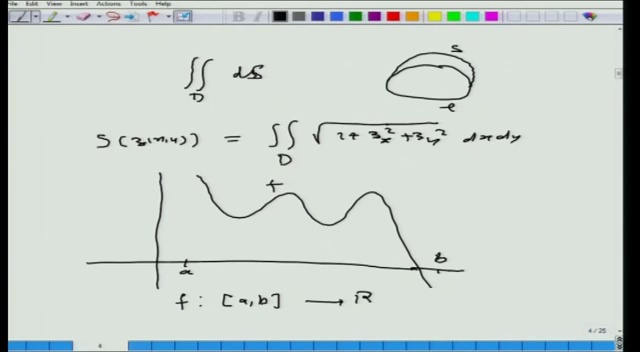 File View Insert Actions Tools Help
B I
∬_D dS
S
e
S(z(x,y)) = ∬_D √(1 + z_x² + z_y²) dx dy
f
a b
f : [a,b] ⟶ ℝ
4 / 25
4